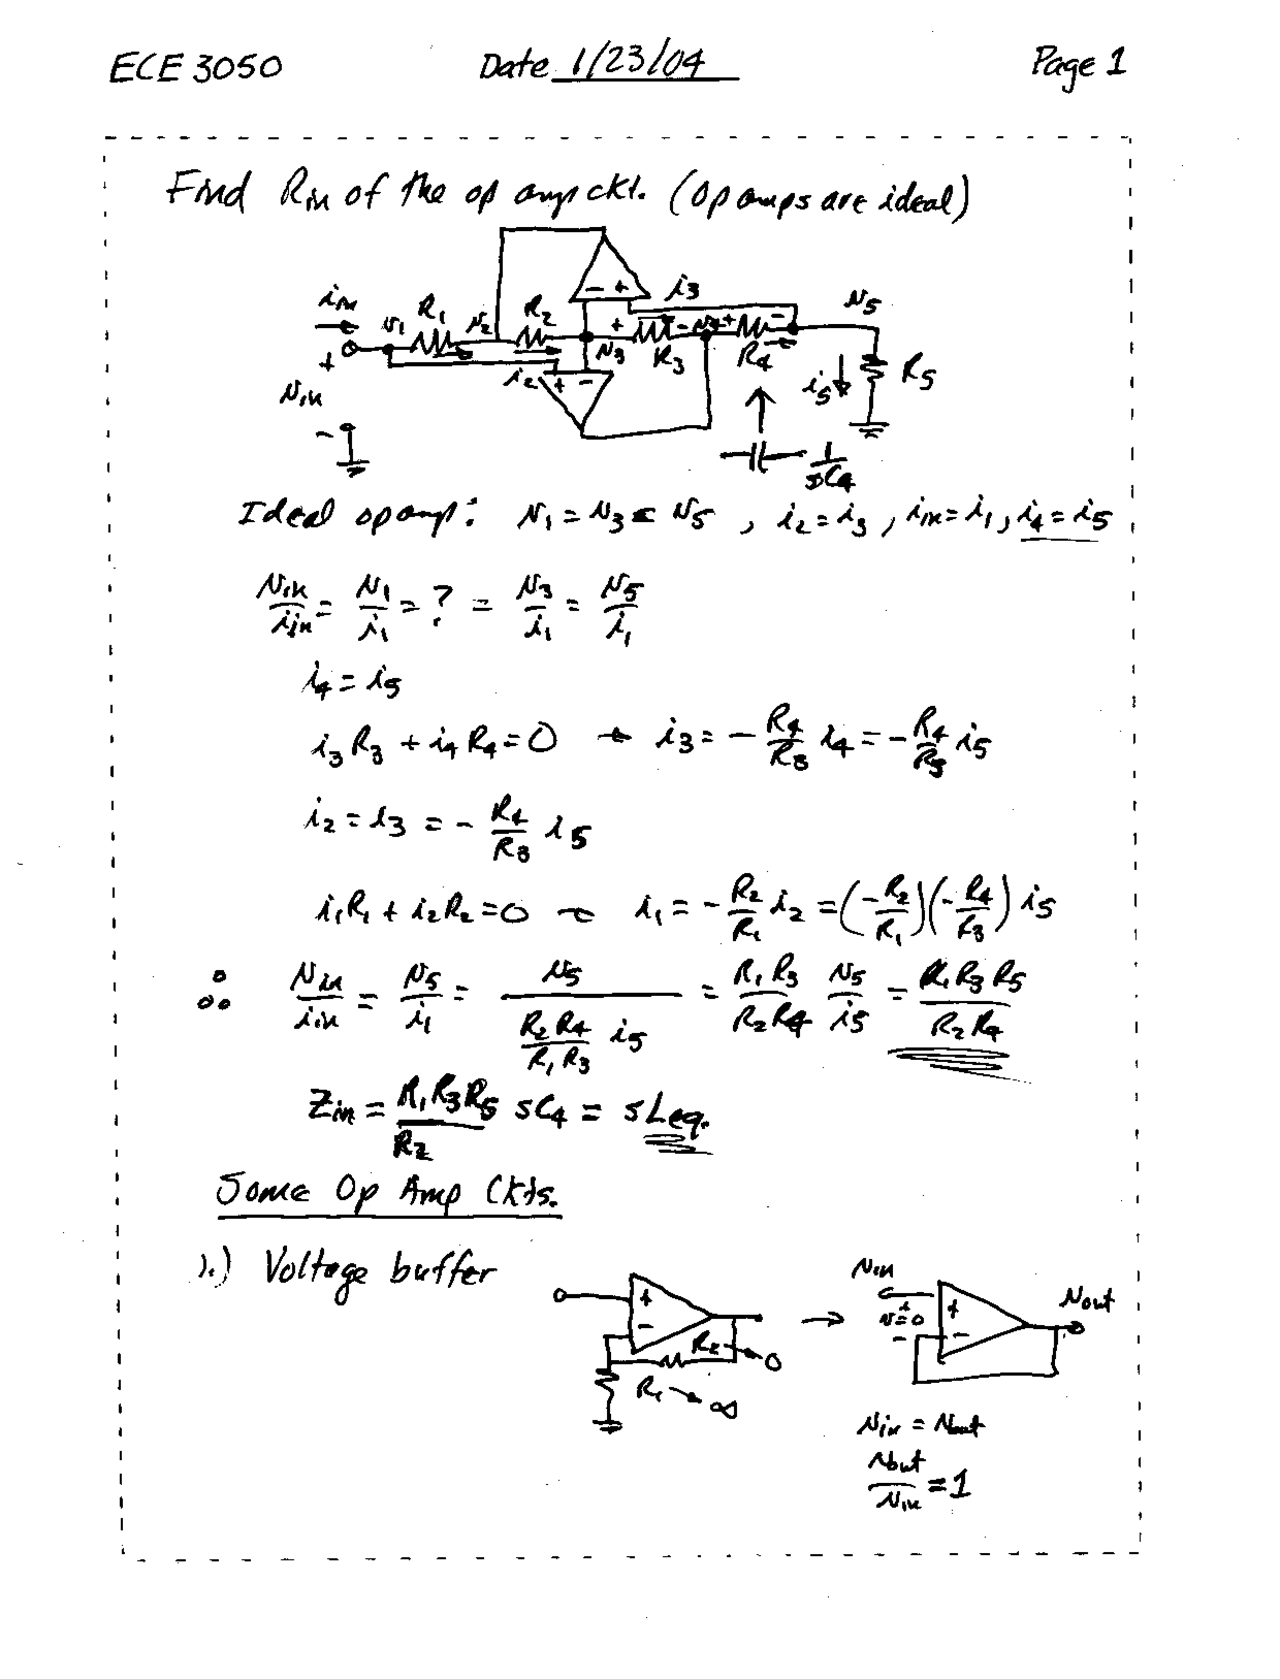 ECE 3050 Date 1/23/04 Page 1
Find Rin of the op amp ckt. (Op amps are ideal)
iin v1 R1 v2 R2 - + i3 v5
+ v3 + R3 - v4 + R4 -
vin i2 + - i5 R5
- 1/sC4
Ideal op amp: v1 = v3 = v5 , i2 = i3 , iin = i1 , i4 = i5
vin/iin = v1/i1 = ? = v3/i1 = v5/i1
i4 = i5
i3 R3 + i4 R4 = 0 → i3 = - R4/R3 i4 = - R4/R3 i5
i2 = i3 = - R4/R3 i5
i1 R1 + i2 R2 = 0 → i1 = - R2/R1 i2 = (- R2/R1)(- R4/R3) i5
∴ vin/iin = v5/i1 = v5/(R2 R4/R1 R3 i5) = R1 R3/R2 R4 v5/i5 = R1 R3 R5/R2 R4
Zin = R1 R3 R5/R2 sC4 = sLeq.
Some Op Amp Ckts.
1.) Voltage buffer
+ - R2 → 0
R1 → ∞
→ vin + v=0 - + - vout
vin = vout
vout/vin = 1